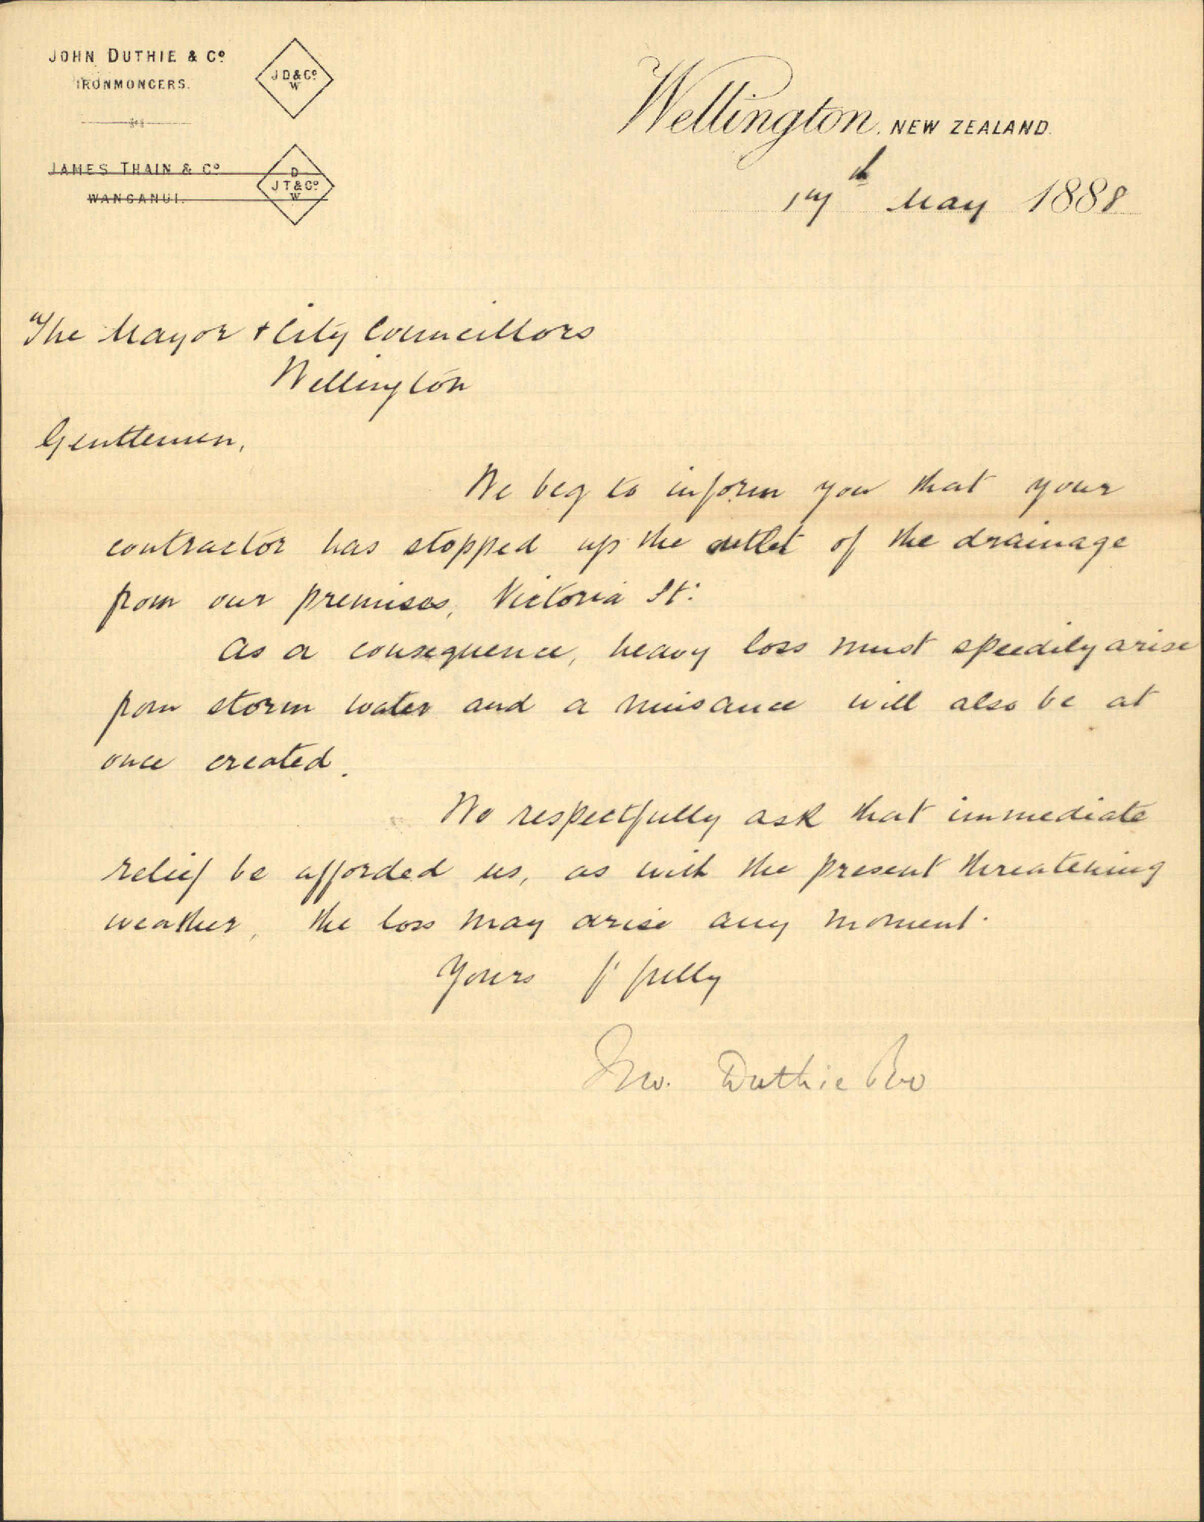 JOHN DUTHIE & Co
IRONMONGERS.
J D & Co
W
JAMES THAIN & Co
WANGANUI.
D
J T & Co
W
Wellington, NEW ZEALAND.
17th May 1888
The Mayor & City Councillors
Wellington
Gentlemen,
We beg to inform you that your
contractor has stopped up the outlet of the drainage
from our premises, Victoria St.
As a consequence, heavy loss must speedily arise
from storm water and a nuisance will also be at
once created.
We respectfully ask that immediate
relief be afforded us, as with the present threatening
weather, the loss may arise any moment.
Yours f'fully
Jno. Duthie & Co